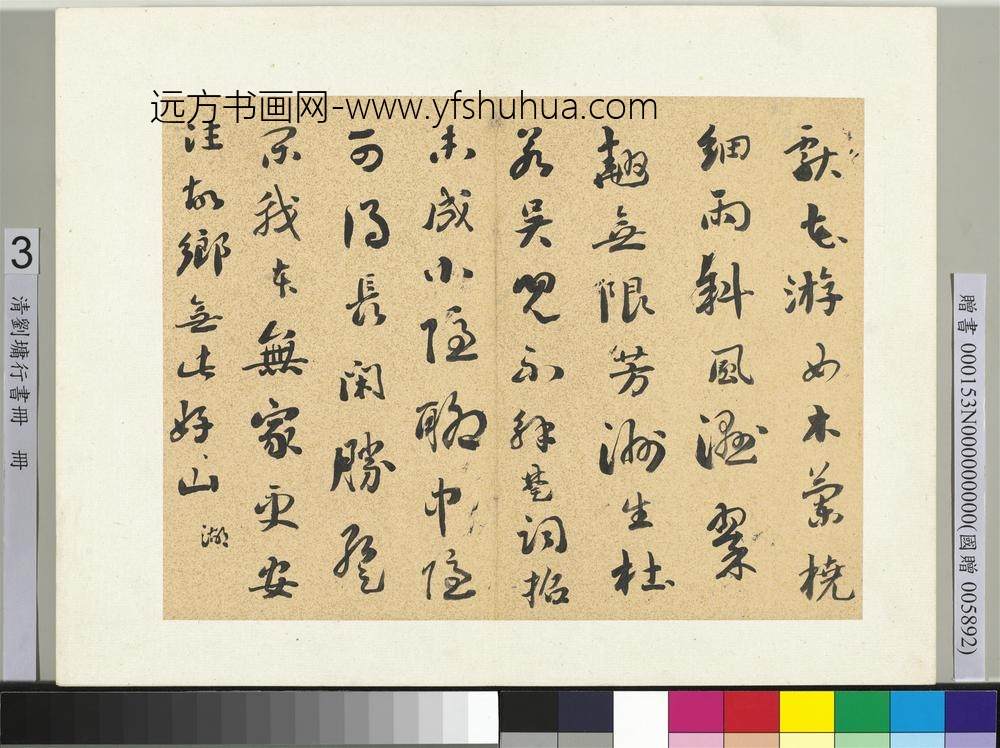 远方书画网-www.yfshuhua.com
獻花游女木蘭橈
細雨斜風濕翠
翹無限芳洲生杜
若吳兒不解楚詞招
未成小隱聊中隱
可得長閑勝暫
閑我本無家更安
往故鄉無此好山
湖
3
清劉墉行書冊 冊
贈書 000153N000000000(國贈 005892)